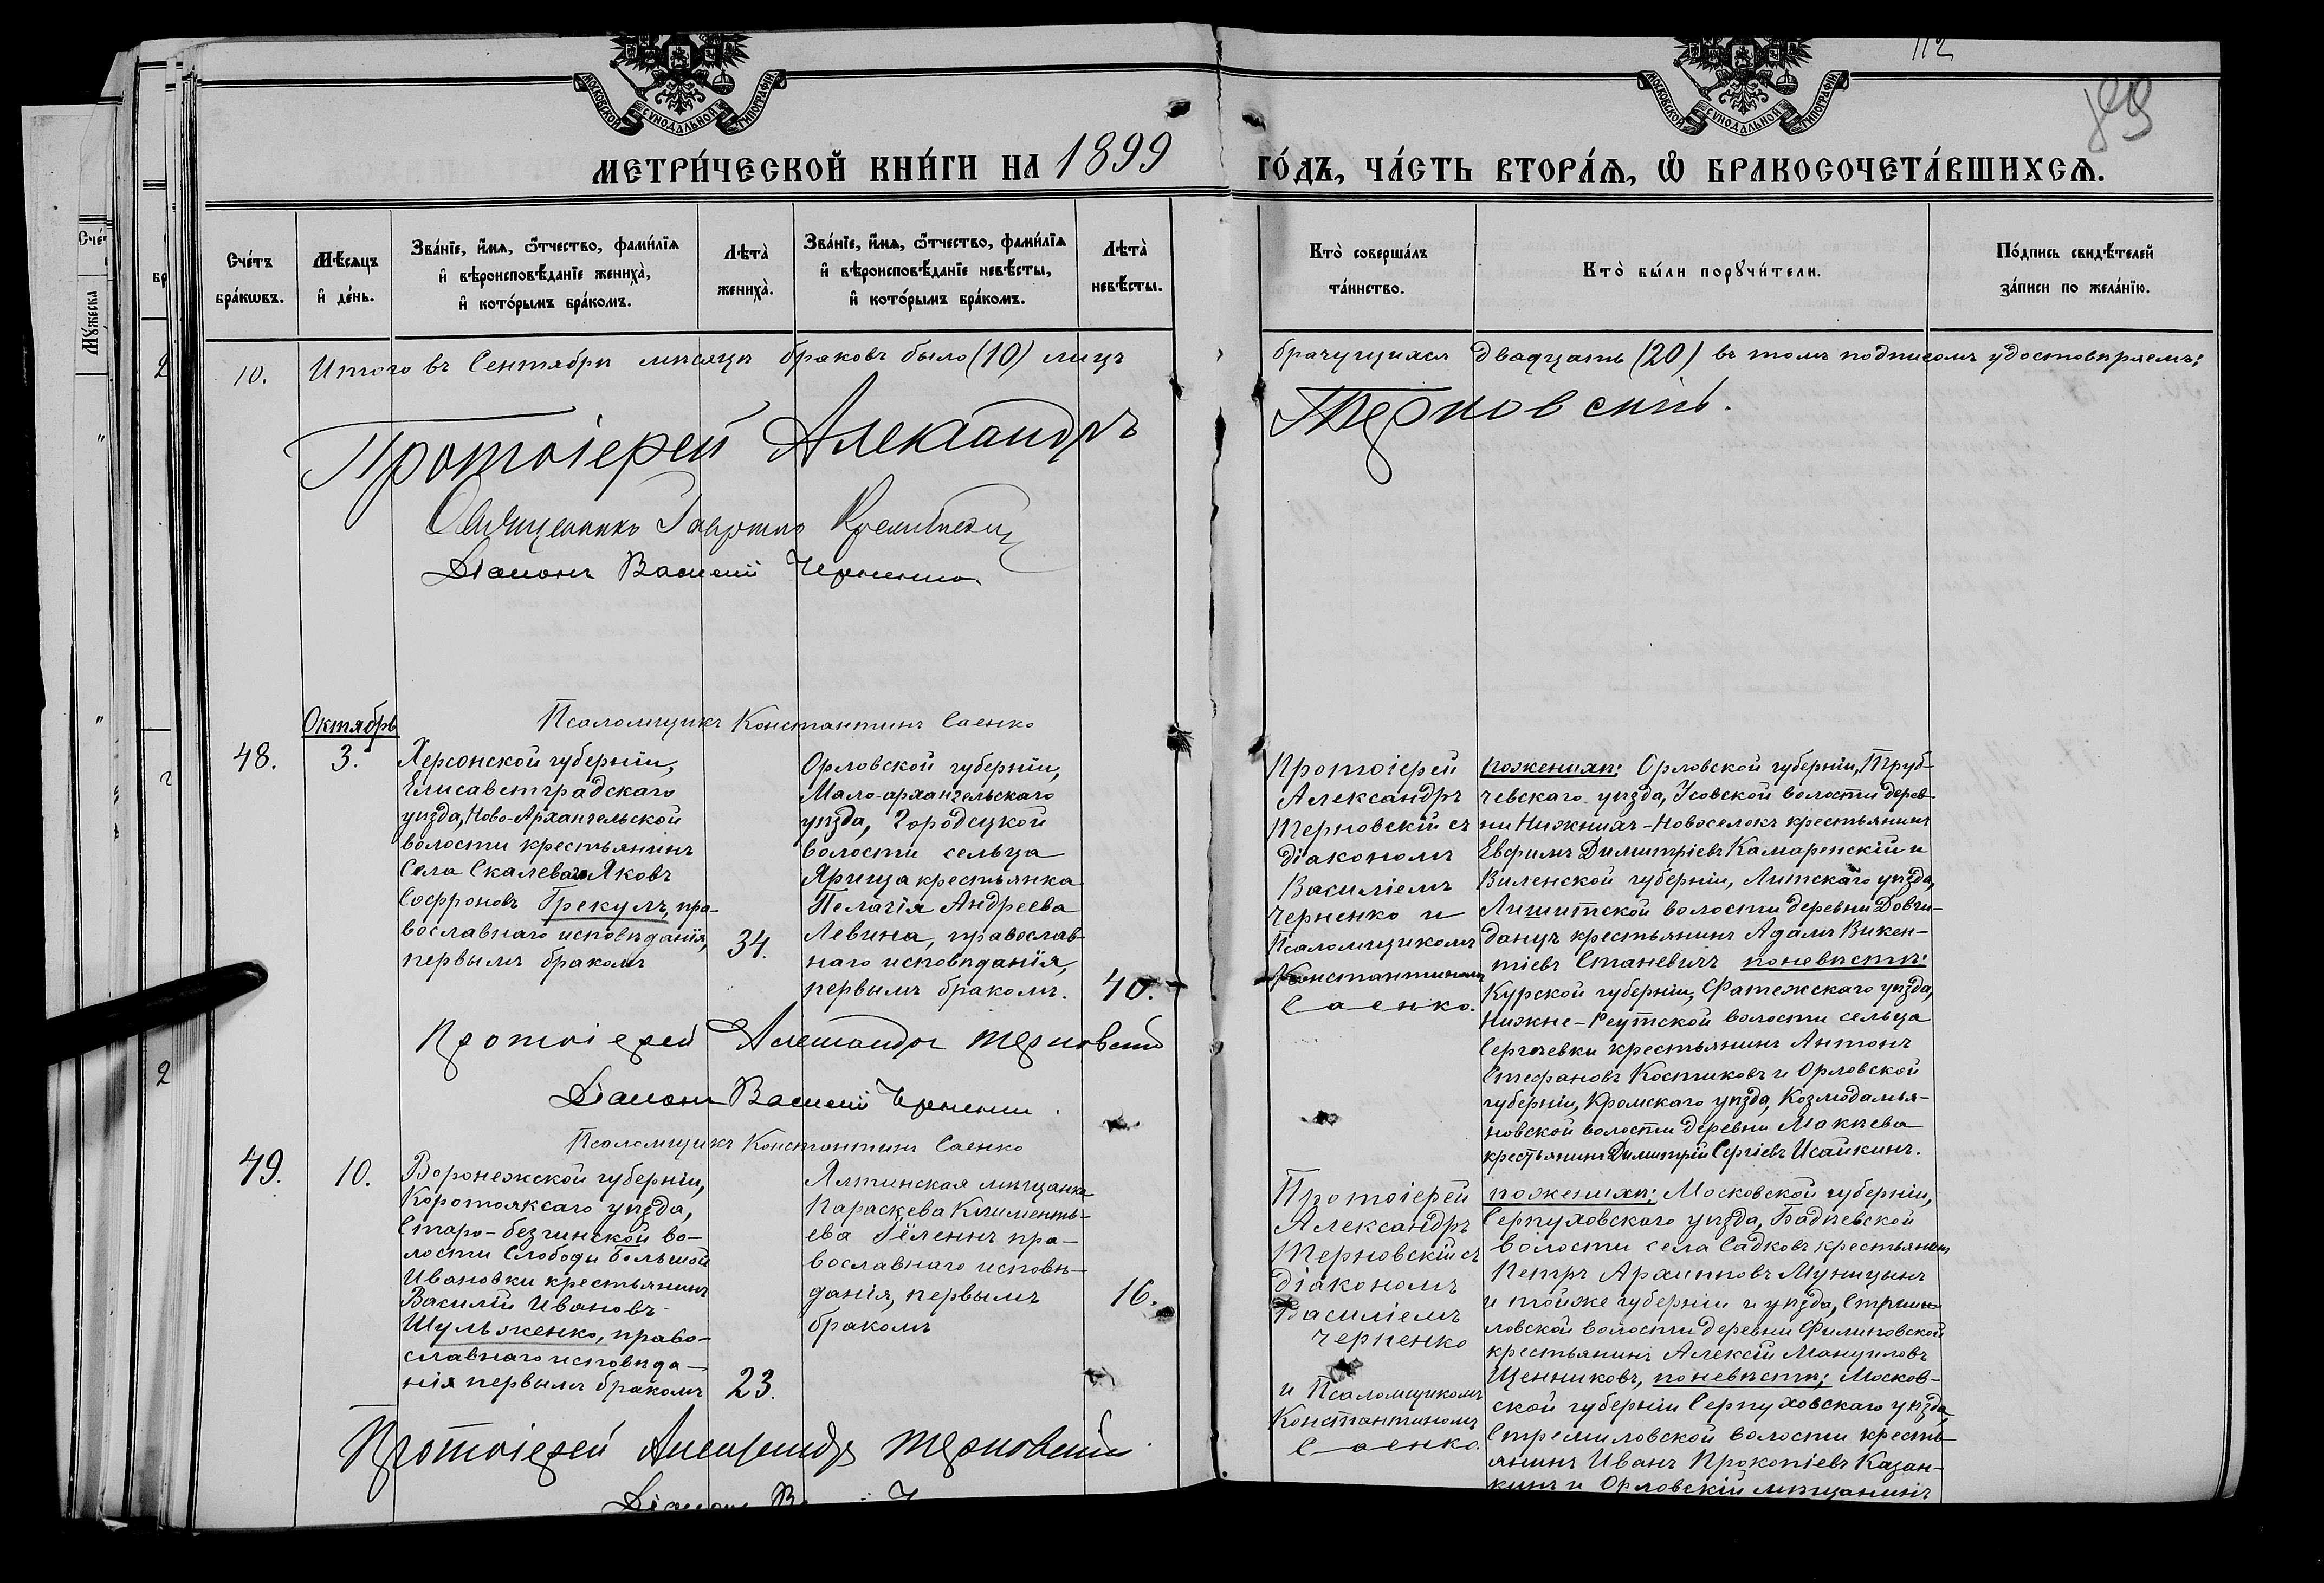 МОСКОВСКОЙ СѴНОДАЛЬНОЙ ТИПОГРАФІИ
МОСКОВСКОЙ СѴНОДАЛЬНОЙ ТИПОГРАФІИ
112
МЕТРИ́ЧЕСКОЙ КНИ́ГИ НА 1899
ГО́ДЪ, ЧА́СТЬ ВТОРА́Ѧ, Ѡ҆ БРАКОСОЧЕТА́ВШИХСѦ.
Сче́тъ бра́кѡвъ.
Мѣ́сѧцъ и҆ де́нь.
Зва́нїе, и҆́мѧ, ѻ҆́тчество, фами́лїѧ и҆ вѣроисповѣ́данїе жениха̀, и҆ кото́рымъ бра́комъ.
Лѣта̀ жениха̀.
Зва́нїе, и҆́мѧ, ѻ҆́тчество, фами́лїѧ и҆ вѣроисповѣ́данїе невѣ́сты, и҆ кото́рымъ бра́комъ.
Лѣта̀ невѣ́сты.
Кто̀ соверша́лъ та́инство.
Кто̀ бы́ли порꙋчи́тели.
По́дпись свидѣ́телей за́писи по жела́нїю.
10. Итого въ Сентябрѣ мѣсяцѣ браковъ было (10) лицъ
брачущихся двадцать (20) въ томъ подписомъ удостовѣряемъ:
Протоіерей Александръ
Терновскій.
Священникъ
Діаконъ Василій Черненко
Псаломщикъ Константинъ Саенко
Октябрь
48.
3.
Херсонской губерніи,
Елисаветградскаго
уѣзда, Ново-Архангельской
волости крестьянинъ
Села Скалеваго Яковъ
Софроновъ Грекулъ, пра-
вославнаго исповѣданія,
первымъ бракомъ
34.
Орловской губерніи,
Мало-архангельскаго
уѣзда, Городецкой
волости сельца
Ярища крестьянка
Пелагія Андреева
Левина, православ-
наго исповѣданія,
первымъ бракомъ.
40.
Протоіерей
Александръ
Терновскій съ
діакономъ
Василіемъ
Черненко и
Псаломщикомъ
Константиномъ
Саенко.
поженихѣ: Орловской губерніи, Труб-
чевскаго уѣзда, Усовской волости дерев-
ни Нижнихъ-Новоселокъ крестьянинъ
Евфимъ Димитріевъ Камаренскій и
Виленской губерніи, Литскаго уѣзда,
волости деревни Довги-
данцъ крестьянинъ Адамъ Викен-
тіевъ Станевичъ поневѣстѣ:
Курской губерніи, Фатежскаго уѣзда,
Нижне-Реутской волости сельца
Сергѣевки крестьянинъ Антонъ
Стефановъ Костиковъ и Орловской
губерніи, Кромскаго уѣзда, Козмодамья-
новской волости деревни Макѣева
крестьянинъ Димитрій Сергіевъ Исайкинъ.
Протоіерей Александръ Терновскій
Діаконъ Василій Черненко
Псаломщикъ Константинъ Саенко
49.
10.
Воронежской губерніи,
Коротояксаго уѣзда,
Старо-безгинской во-
лости Слободы Большой
Ивановки крестьянинъ
Василій Ивановъ
Шульженко, право-
славнаго исповѣда-
нія первымъ бракомъ
23.
Ялтинская мѣщанка
Параскева Климентъ-
ева Гёленнъ пра-
вославнаго исповѣ-
данія, первымъ
бракомъ
16.
Протоіерей
Александръ
Терновскій съ
діакономъ
Василіемъ
Черненко
и Псаломщикомъ
Константиномъ
Саенко.
поженихѣ: Московской губерніи,
Серпуховскаго уѣзда, Бадѣевской
волости села Садковъ крестьянинъ
Петръ Архиповъ Муницынъ
и тойже губерніи и уѣзда,
ловской волости деревни Филиповской
крестьянинъ Алексій Мануиловъ
Щенниковъ, поневѣстѣ: Москов-
ской губерніи Серпуховскаго уѣзда,
Стремиловской волости кресть-
янинъ Иванъ Прокопіевъ Казан-
кинъ и Орловскій мѣщанинъ
Протоіерей Александръ Терновскій
Діаконъ